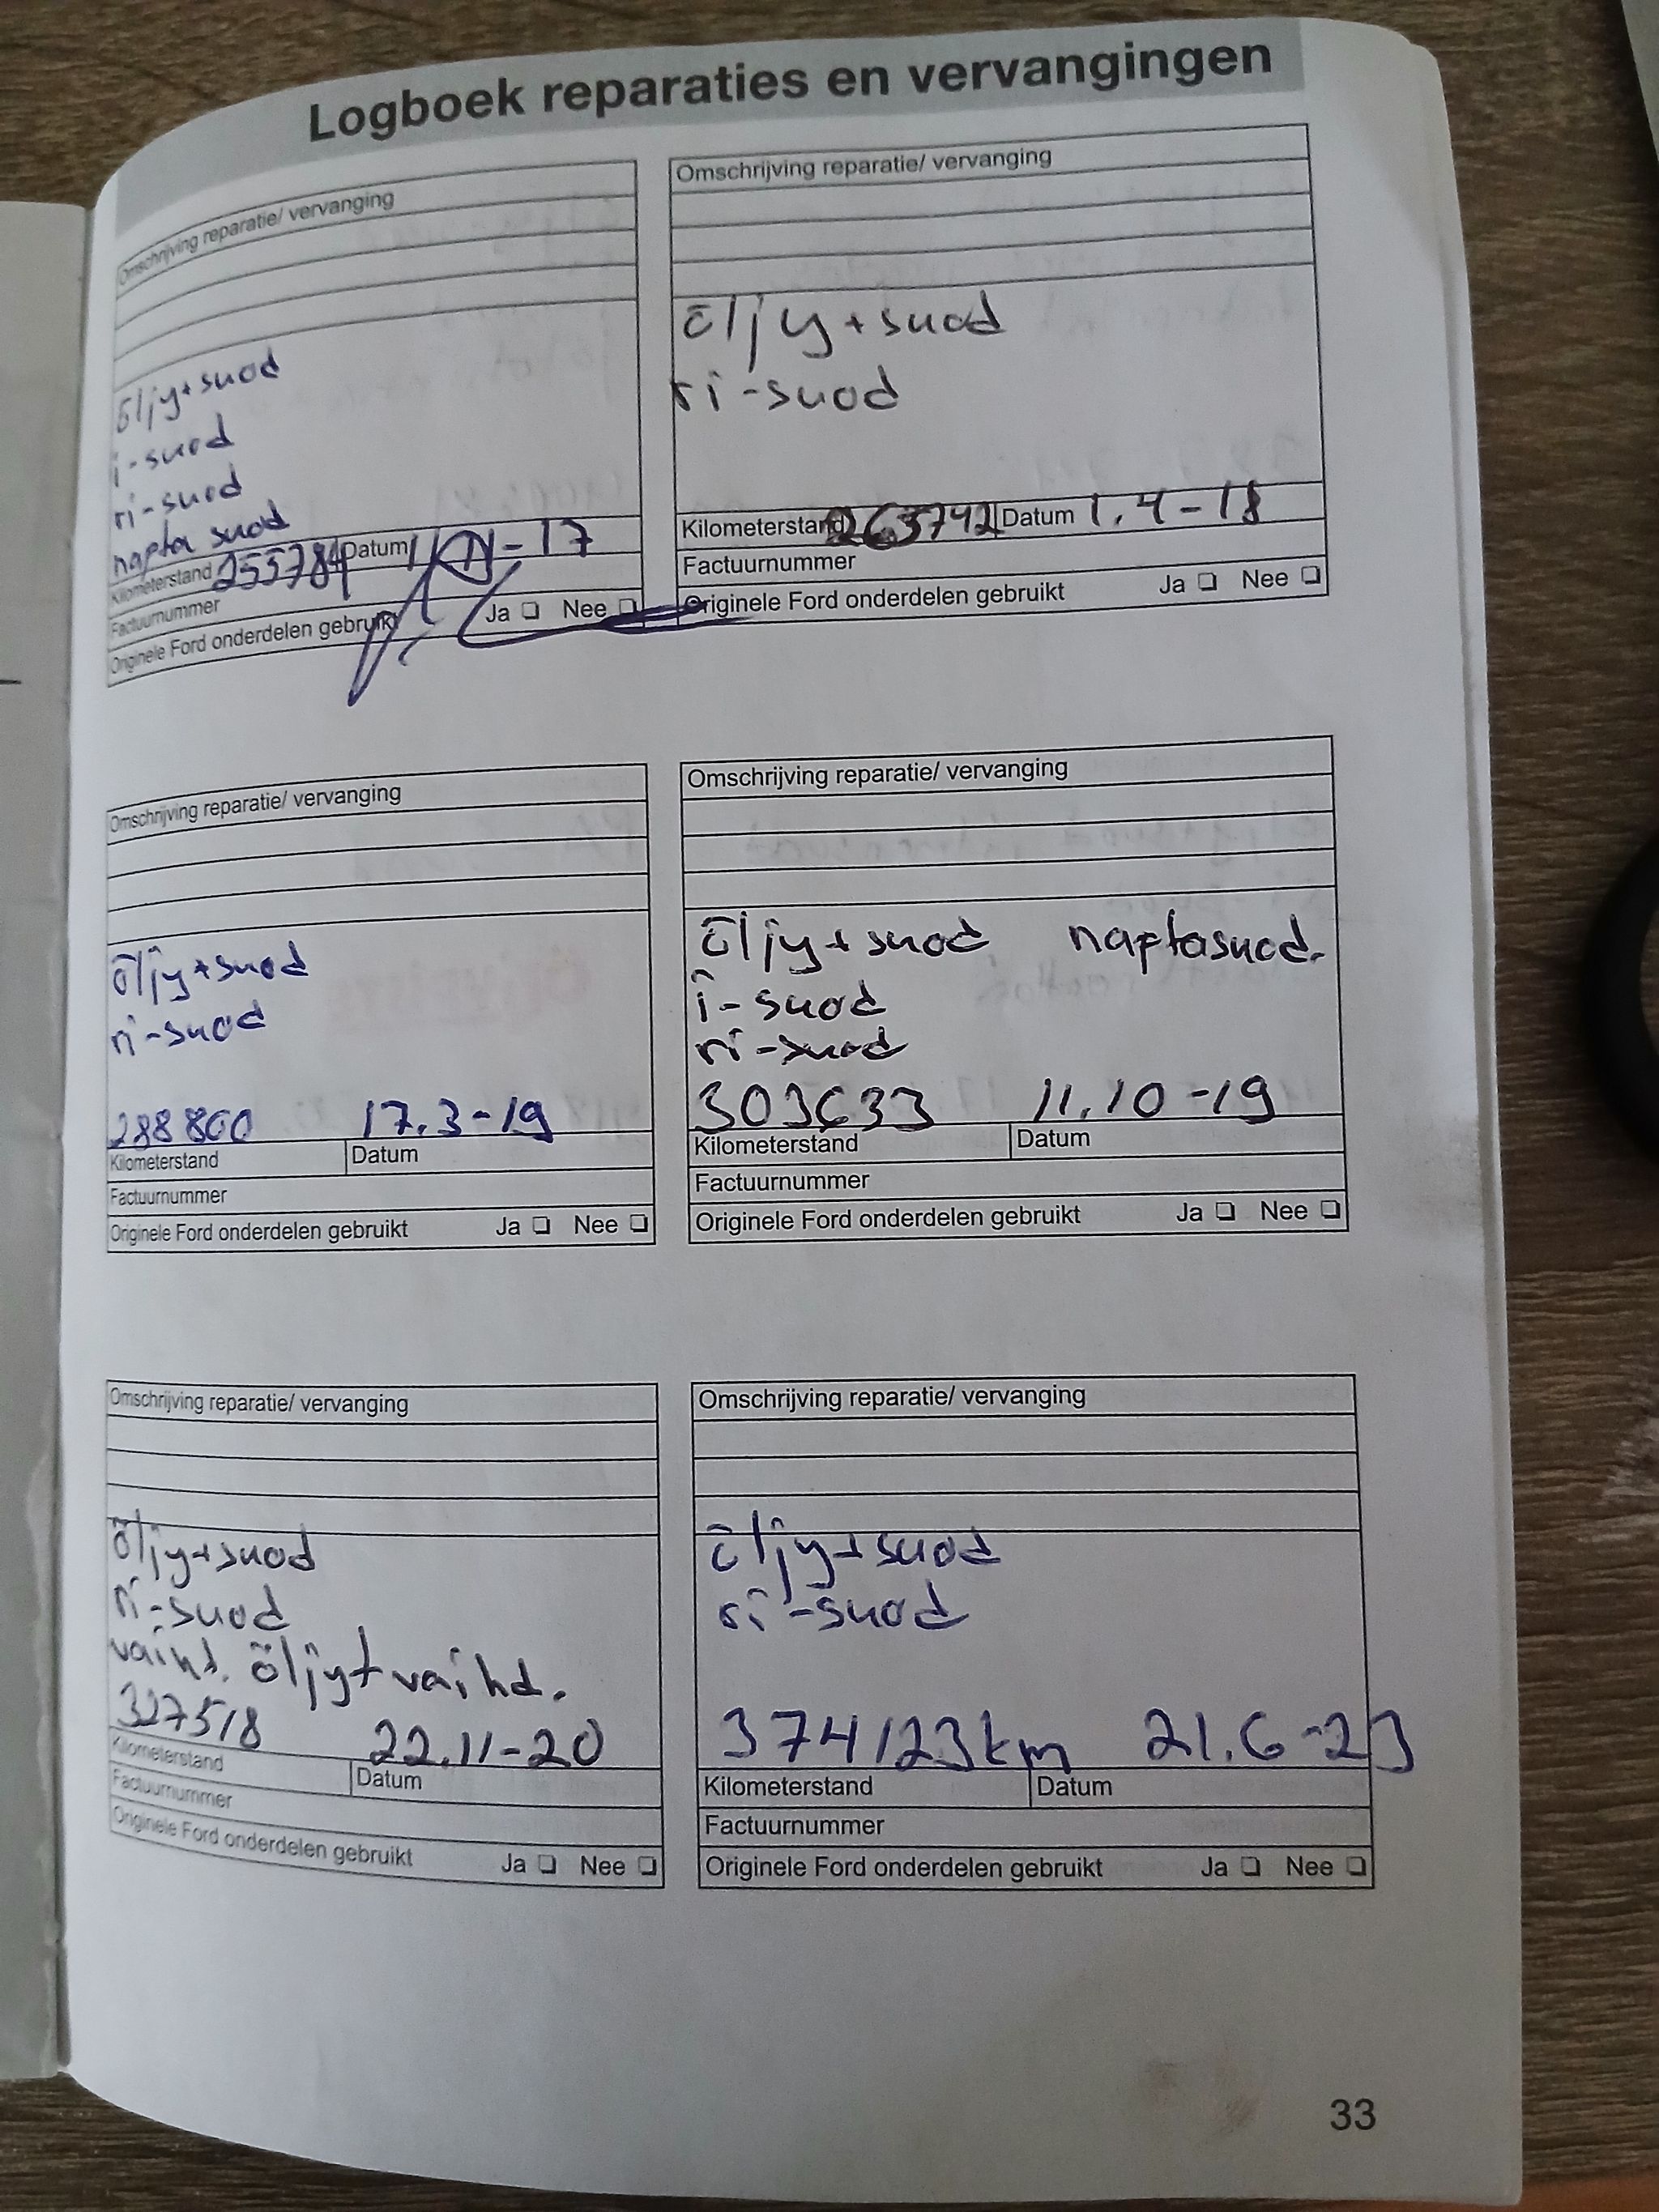 Logboek reparaties en vervangingen
Omschrijving reparatie/ vervanging
öljy+suod
i-suod
ri-suod
napta suod
Kilometerstand 255784 Datum -17
Factuurnummer
Originele Ford onderdelen gebruikt Ja Nee
Omschrijving reparatie/ vervanging
öljy+suod
ri-suod
Kilometerstand 263742 Datum 1.4-18
Factuurnummer
Originele Ford onderdelen gebruikt Ja Nee
Omschrijving reparatie/ vervanging
öljy+suod
ri-suod
288860 17.3-19
Kilometerstand Datum
Factuurnummer
Originele Ford onderdelen gebruikt Ja Nee
Omschrijving reparatie/ vervanging
öljy+suod naptasuod.
i-suod
ri-suod
303633 11.10-19
Kilometerstand Datum
Factuurnummer
Originele Ford onderdelen gebruikt Ja Nee
Omschrijving reparatie/ vervanging
öljy+suod
ri-suod
vaihd. öljyt vaihd.
327518 22.11-20
Kilometerstand Datum
Factuurnummer
Originele Ford onderdelen gebruikt Ja Nee
Omschrijving reparatie/ vervanging
öljy+suod
ri-suod
374123km 21.6-23
Kilometerstand Datum
Factuurnummer
Originele Ford onderdelen gebruikt Ja Nee
33